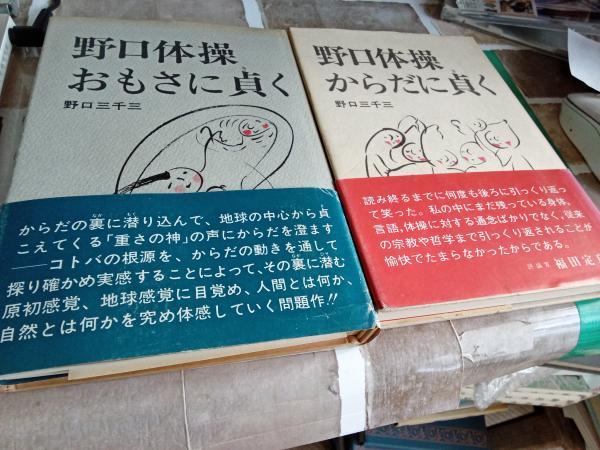 野口体操
おもさに貞く
野口三千三
からだの裏に潜り込んで、地球の中心から貞
こえてくる「重さの神」の声にからだを澄ます
――コトバの根源を、からだの動きを通して
探り確かめ実感することによって、その裏に潜む
原初感覚、地球感覚に目覚め、人間とは何か、
自然とは何かを究め体感していく問題作!!
野口体操
からだに貞く
野口三千三
読み終るまでに何度も後ろに引っくり返っ
て笑った。私の中にまだ残っている身体、
言語、体操に対する通念ばかりでなく、従来
の宗教や哲学まで引っくり返されることが
愉快でたまらなかったからである。
評論家 福田定